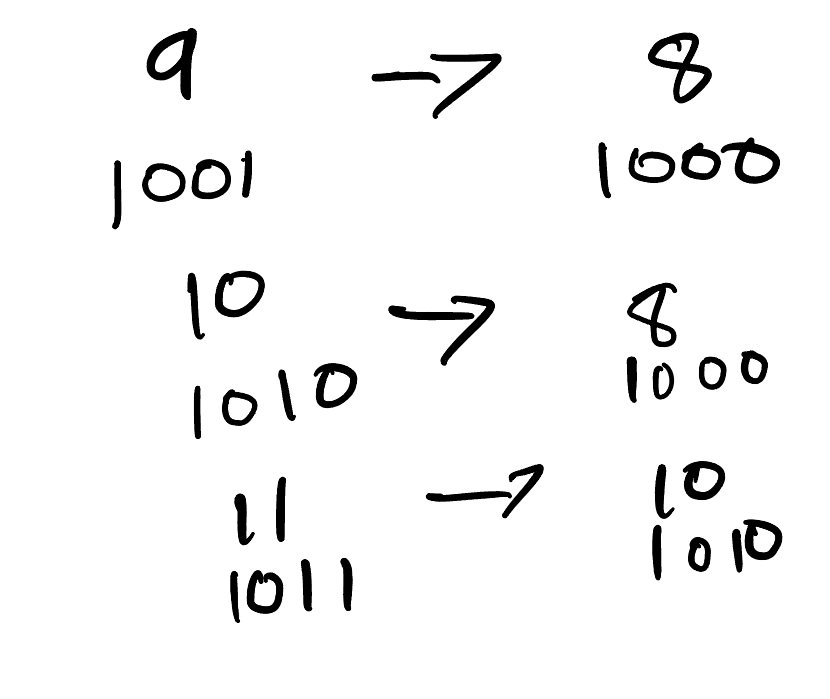 9 → 8
1001 1000
10 → 8
1010 1000
11 → 10
1011 1010